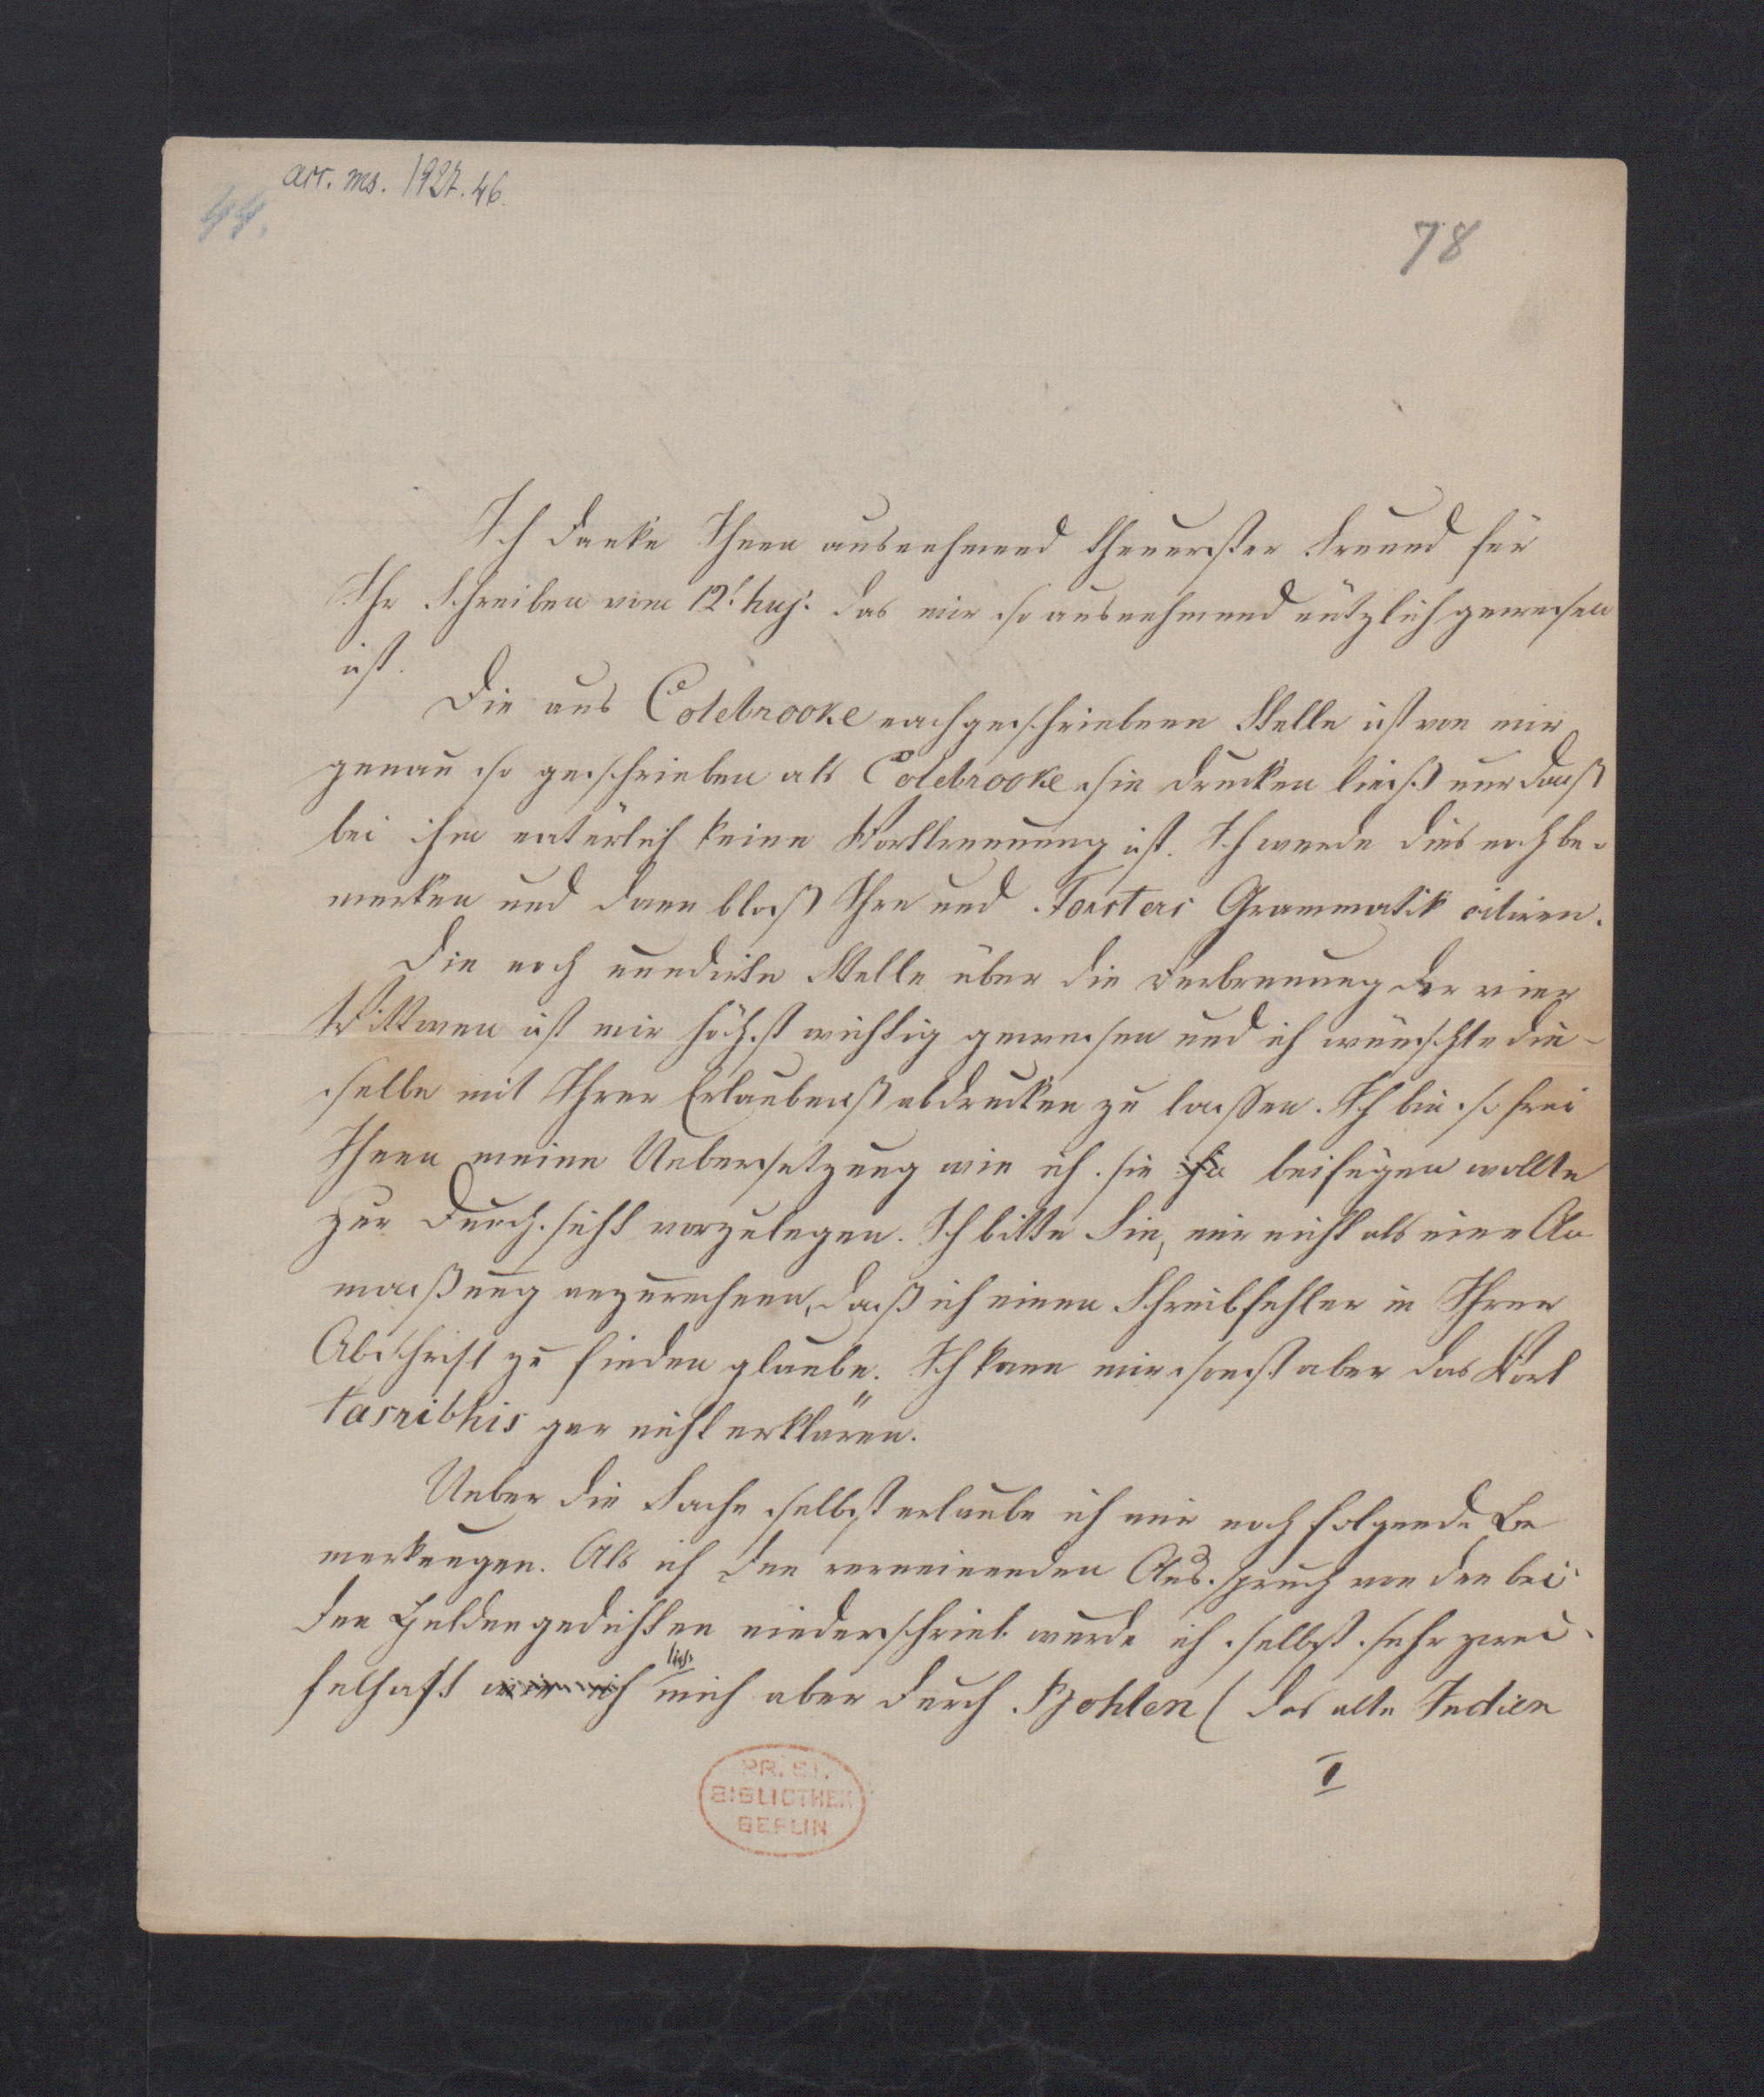 acc. ms. 1927. 46.
44.
78
Ich danke Ihnen ausnehmend theuerster Freund für
Ihr Schreiben vom 12t. huj: das mir so ausnehmend nützlich gewesen
ist.
Die aus Colebrooke nachgeschriebene Stelle ist von mir
genau so geschrieben als Colebrooke sie drucken ließ nur daß
bei ihm natürlich keine Worttrennung ist. Ich werde dies noch be-
merken und dann bloß Ihre und Forsters Grammatik citiren.
Die noch unedirte Stelle über die Verbrennung der vier
Wittwen ist mir höchst wichtig gewesen und ich wünschte die-
selbe mit Ihrer Erlaubniß abdrucken zu lassen. Ich bin so frei
Ihnen meine Uebersetzung wie ich sie beifügen wollte
zur Durchsicht vorzulegen. Ich bitte Sie, mir nicht als eine An
maßung anzurechnen, daß ich einen Schreibfehler in Ihrer
Abschrift zu finden glaube. Ich kann mir sonst aber das Wort
tasribhis gar nicht erklären.
Ueber die Sache selbst erlaube ich mir noch folgende Be
merkungen. Als ich den verneinenden Ausspruch von den bei
den Heldengedichten niederschrieb wurde ich selbst sehr zwei-
felhaft ließ mich aber durch Bohlen (das alte Indien
I
PR. ST.
BIBLIOTHEK
BERLIN